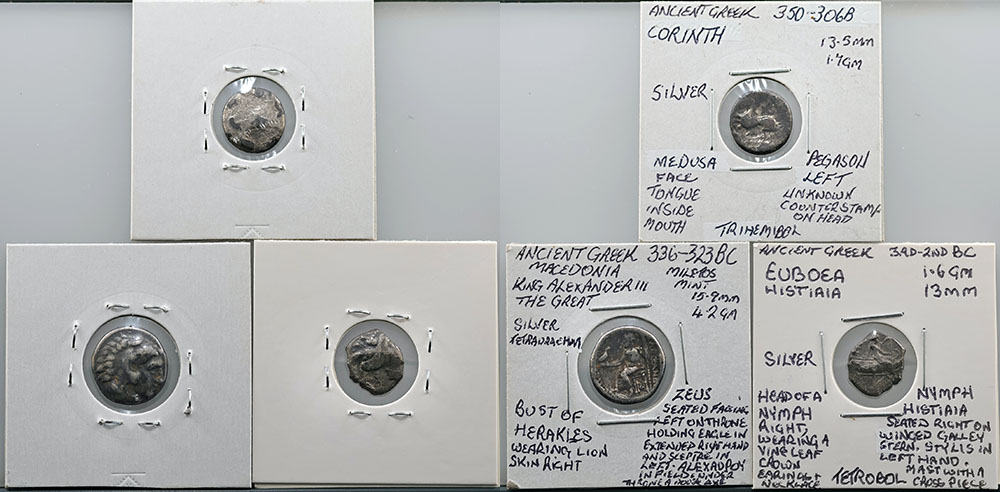 ANCIENT GREEK 350-306B
CORINTH
13.5mm
1.7GM
SILVER
MEDUSA
FACE
TONGUE
INSIDE
MOUTH
PEGASON
LEFT
UNKNOWN
COUNTERSTAMP
ON HEAD
TRIHEMIBOL
ANCIENT GREEK 336-323BC
MACEDONIA
KING ALEXANDER III
THE GREAT
MILETOS
MINT
15.9mm
4.2GM
SILVER
BUST OF
HERAKLES
WEARING LION
SKIN RIGHT
ZEUS
SEATED FACING
LEFT ON THRONE
HOLDING EAGLE IN
EXTENDED RIGHT HAND
AND SCEPTRE IN
LEFT.
IN FIELD UNDER
THRONE A DOUBLE AXE
ANCIENT GREEK 3RD-2ND BC
EUBOEA
HISTIAIA
1.6GM
13mm
SILVER
HEAD OF A
NYMPH
RIGHT,
WEARING A
VINE LEAF
CROWN
EARING &
NECKLACE
NYMPH
HISTIAIA
SEATED RIGHT ON
WINGED GALLEY
STERN. STYLIS IN
LEFT HAND.
MAST WITH A
CROSS PIECE
TETROBOL